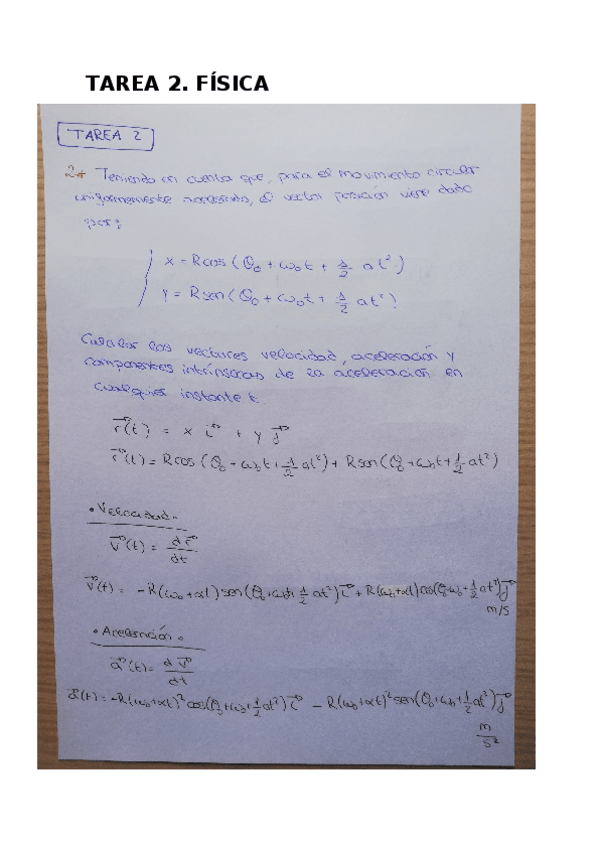 TAREA 2. FÍSICA
TAREA 2
2.- Teniendo en cuenta que, para el movimiento circular
uniformemente acelerado, el vector posición viene dado
por:
x = Rcos (θ₀ + ω₀t + 1/2 αt²)
y = Rsen (θ₀ + ω₀t + 1/2 αt²)
Calcular los vectores velocidad, aceleración y
componentes intrínsecas de la aceleración en
cualquier instante t.
r⃗(t) = x i⃗ + y j⃗
r⃗(t) = Rcos (θ₀ + ω₀t + 1/2 αt²) + Rsen (θ₀ + ω₀t + 1/2 αt²)
• Velocidad.
v⃗(t) = dr⃗/dt
v⃗(t) = -R(ω₀+αt) sen(θ₀+ω₀t+1/2 αt²) i⃗ + R(ω₀+αt) cos(θ₀+ω₀+1/2 αt²) j⃗
m/s
• Aceleración.
a⃗(t) = dv⃗/dt
a⃗(t) = -R(ω₀+αt)² cos(θ₀+ω₀+1/2 αt²) i⃗ - R(ω₀+αt)² sen(θ₀+ω₀+1/2 αt²) j⃗
m/s²